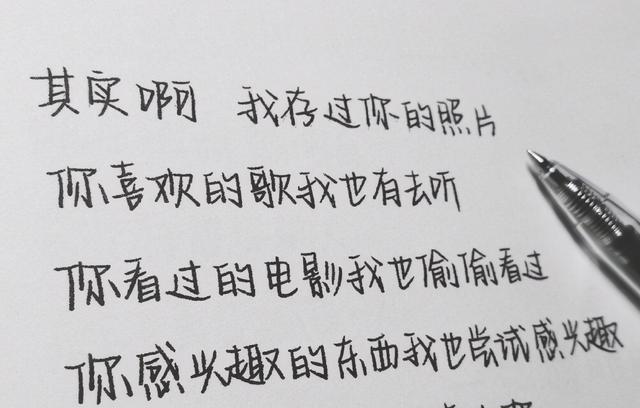 其实啊 我存过你的照片
你喜欢的歌我也有去听
你看过的电影我也偷偷看过
你感兴趣的东西我也尝试感兴趣